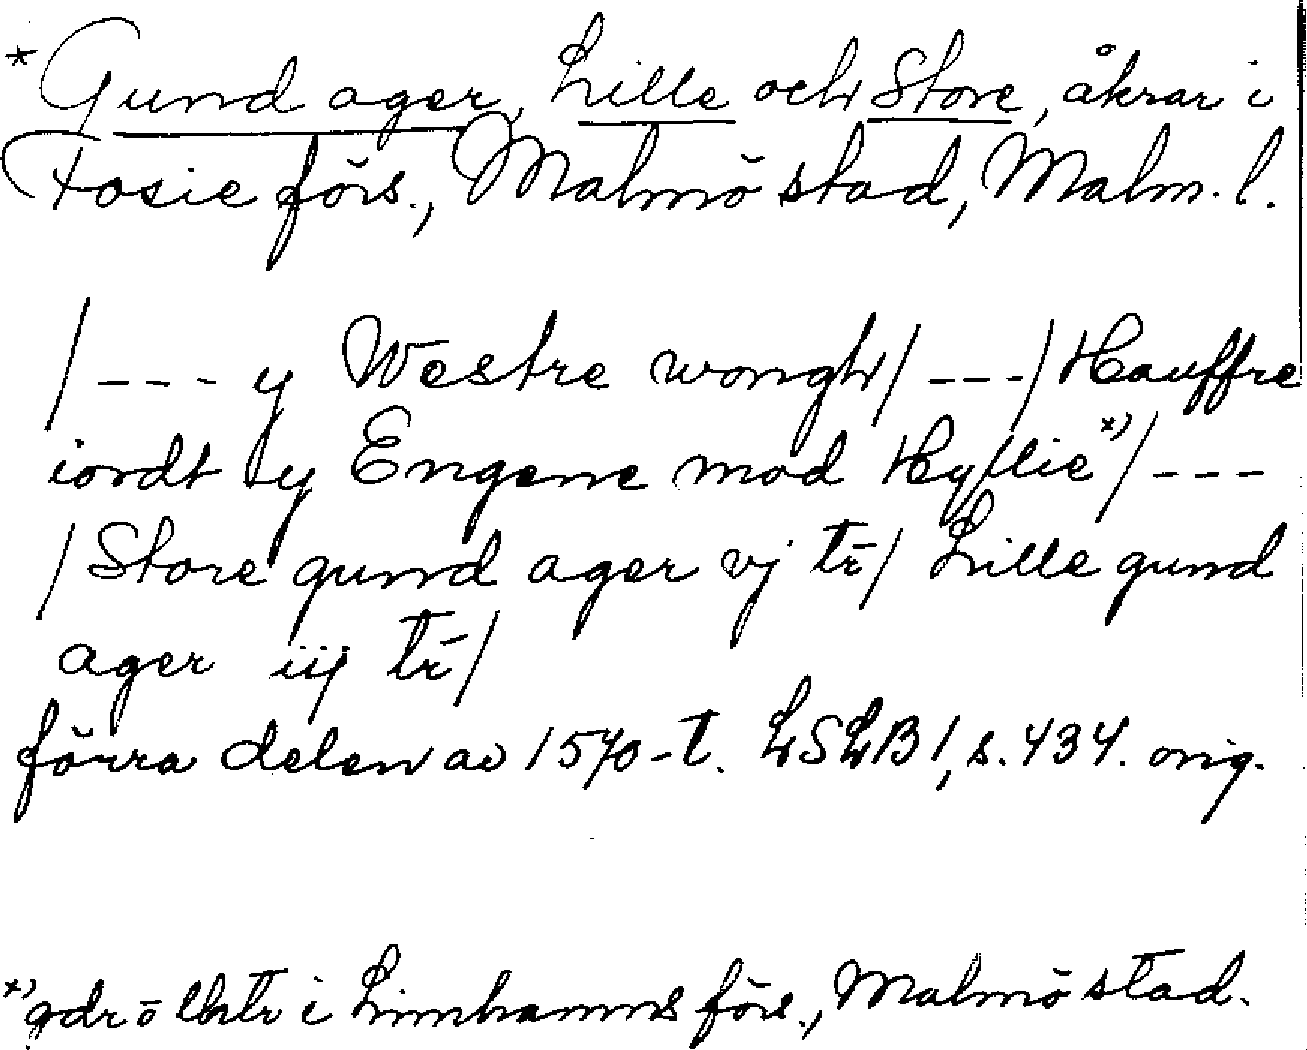 * Gund ager, Lille och Store, åkrar i
Fosie förs., Malmö stad, Malm. l.
/--- y Westre wongh/ ---/ Hauffre
iordt y Engene mod Hyllie*)/ ---
/ Store gund ager vj tr̄/ Lille gund
ager iij tr̄/
förra delen av 1570-t. LSLB 1, s. 434. orig.
*) gdr o lht i Limhamns förs., Malmö stad.